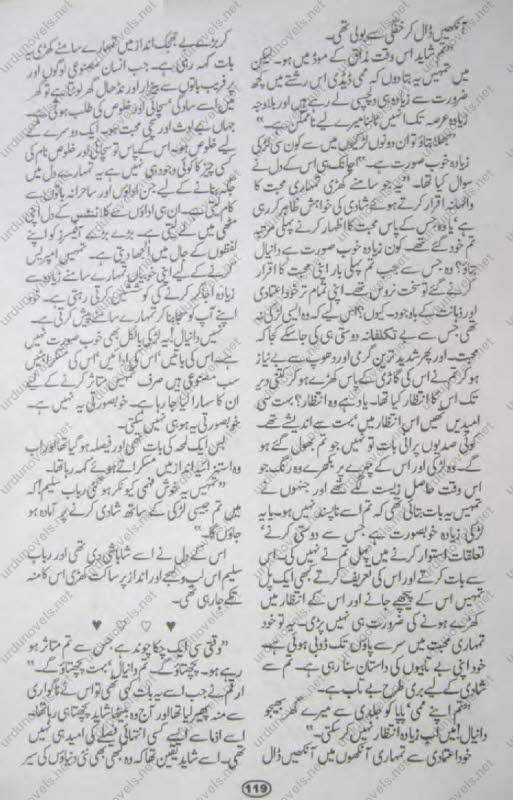 آنکھیں ڈال کر خفگی سے بولی تھی۔
"تم شاید اس وقت مذاق کے موڈ میں ہو۔ لیکن
میں تمہیں یہ بتا دوں کہ ممی ڈیڈی اس رشتے میں کچھ
ضرورت سے زیادہ ہی دلچسپی لے رہے ہیں اور بلاوجہ
زیادہ عرصہ تک انہیں ٹالنا میرے لیے ناممکن ہے۔"
"بھلا بتاؤ تو ان دونوں لڑکیوں میں سے کون سی لڑکی
زیادہ خوب صورت ہے۔" اچانک ہی اس کے دل نے
سوال کیا تھا۔ "یہ جو سامنے کھڑی تمہاری محبت کا
والہانہ اقرار کرتے ہوئے شادی کی خواہش ظاہر کر رہی
ہے یا وہ جس کے پاس محبت کا اظہار کرنے پہلی مرتبہ
تم خود گئے تھے۔ کون زیادہ خوب صورت ہے دانیال
بتاؤ؟ وہ جس سے جب تم پہلی بار اپنی محبت کا اقرار
کرنے گئے تو سخت نروس تھے۔ اپنی تمام تر خود اعتمادی
اور ذہانت کے باوجود۔ کیوں؟ اس لیے کہ وہ ایسی لڑکی نہ
تھی جس سے بے تکلفانہ دوستی ہی کی جا سکے کجا کہ
محبت۔ اور پھر شدید ترین گرمی اور دھوپ سے بے نیاز
ہو کر تم نے اس کی گاڑی کے پاس کھڑے ہو کر کتنی دیر
تک اس کا انتظار کیا تھا۔ یاد ہے وہ انتظار؟ بہت سی
امیدیں تھیں اس انتظار میں بہت سے اندیشے تھے۔
کوئی صدیوں پرانی بات تو نہیں جو تم بھول گئے ہو
گے۔ وہ لڑکی اور اس کے چہرے پر بکھرے وہ رنگ جو
اس وقت حاصل زیست لگے تھے اور جنہوں نے
تمہیں یہ بات بتائی تھی کہ تم اسے ناپسند نہیں ہو۔ یا یہ
لڑکی زیادہ خوبصورت ہے جس سے دوستی کرنے
تعلقات استوار کرنے میں پہل تم نے نہیں کی۔ اس
سے بات کرتے اور اس کی تعریف کرتے بھی ایک پل
تمہیں اس کے پیچھے جانے اور اس کے انتظار میں
کھڑے ہونے کی ضرورت ہی نہیں پڑی۔ یہ تو خود
تمہاری محبت میں سر سے پاؤں تک ڈوبی ہوئی ہے۔
خود اپنی بے تابیوں کی داستان سنا رہی ہے۔ تم سے
شادی کے لیے بری طرح بے تاب ہے۔
"تم اپنے ممی پاپا کو جلدی سے میرے گھر بھیجو
دانیال! میں اب زیادہ انتظار نہیں کر سکتی۔"
خود اعتمادی سے تمہاری آنکھوں میں آنکھیں ڈال
کر بڑے بے جھجک انداز میں تمہارے سامنے کھڑی یہ
بات کہہ رہی ہے۔ جب انسان مصنوعی لوگوں اور
پر فریب باتوں سے بیزار اور نڈھال گھر لوٹتا ہے تو گھر
میں اسے سادگی سچائی اور خلوص کی طلب ہوتی ہے۔
جہاں بے لوث اور سچی محبت ہو۔ ایک دوسرے کے
لیے خلوص ہو۔ اس کے پاس تو سچائی اور خلوص نام کی
کسی چیز کا کوئی وجود ہی نہیں ہے یہ تمہارے دل میں
جگہ بنانے کے لیے جن اداؤں اور ساحرانہ باتوں سے
کام لیتی ہے۔ ان ہی اداؤں سے کلائنٹس کے دل اپنی
مٹھی میں لے لیتی ہے۔ بڑے بڑے آفیسرز کو اپنے
لفظوں کے جال میں الجھا دیتی ہے۔ تمہیں امپریس
کرنے کے لیے اپنی خوبیاں تمہارے سامنے زیادہ سے
زیادہ اجاگر کرنے کی کوششیں کرتی رہتی ہے۔ خود
اپنے آپ کو سجا بنا کر تمہارے سامنے پیش کرتی ہے۔
نہیں دانیال! یہ لڑکی بالکل بھی خوب صورت نہیں
ہے اس کی باتیں اس کی ادائیں اس کی مسکراہٹیں
سب مصنوعی ہیں صرف تمہیں متاثر کرنے کے لیے
ان کا سہارا لیا جا رہا ہے۔ خوبصورتی یہ نہیں ہے۔
خوبصورتی یہ ہو ہی نہیں سکتی۔
بس ایک لمحہ کی بات تھی اور فیصلہ ہو گیا تھا اور اب
وہ استہزائیہ انداز میں مسکراتے ہوئے کہہ رہا تھا۔
"تمہیں یہ خوش فہمی کیونکر ہو گئی رباب سلیم! کہ
میں تم جیسی لڑکی کے ساتھ شادی کرنے پر آمادہ ہو
جاؤں گا۔"
اس کے دل نے اسے شاباشی دی تھی اور رباب
سلیم اس لب و لہجے اور انداز پر ساکت کھڑی اس کا منہ
تکے جا رہی تھی۔
♥ ♡ ♡ ♥
"وقتی سی ایک چکا چوند ہے جس سے تم متاثر ہو
رہے ہو۔ پچھتاؤ گے۔ تم دانیال بہت پچھتاؤ گے۔"
ارقم نے جب اسے یہ بات کہی تھی تو اس نے ناگواری
سے منہ پھیر لیا تھا اور آج وہ بیٹھا شاید پچھتا ہی رہا تھا۔
اسے ادما سے ایسے کسی انتہائی فیصلے کی امید ہی نہیں
تھی۔ اسے شاید یقین تھا کہ وہ کبھی بھی نئی دنیاؤں کی سیر
119
urdunovels.net